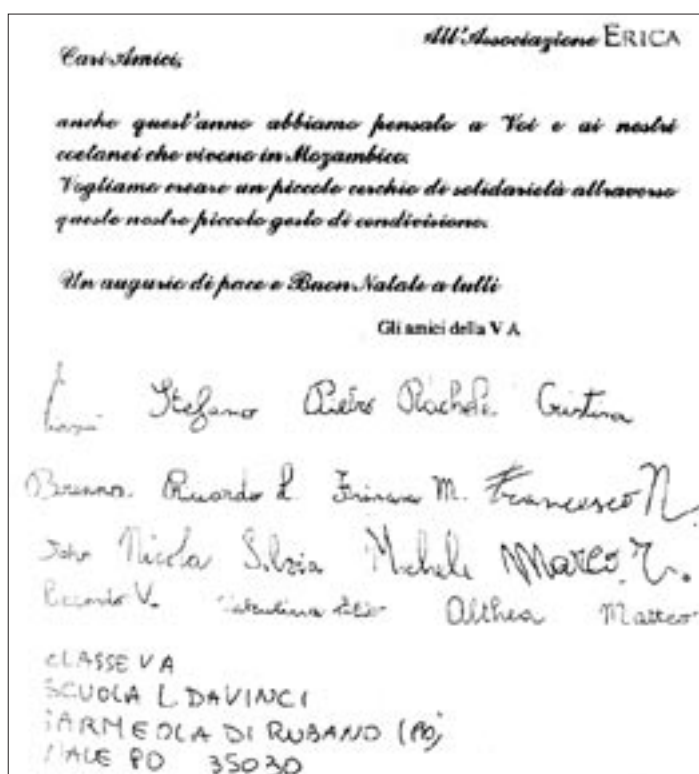 All'Associazione ERICA
Cari Amici,
anche quest'anno abbiamo pensato a Voi e ai nostri
coetanei che vivono in Mozambico.
Vogliamo creare un piccolo cerchio di solidarietà attraverso
questo nostro piccolo gesto di condivisione.
Un augurio di pace e Buon Natale a tutti
Gli amici della V A
Stefano Pietro Rachele Cristina
Brenno. Riccardo L. M. Francesco N.
John Nicola Silvia Michele Marco Z.
Riccardo V. Althea Matteo
CLASSE V A
SCUOLA L DAVINCI
SARMEOLA DI RUBANO (PD)
PD 35030